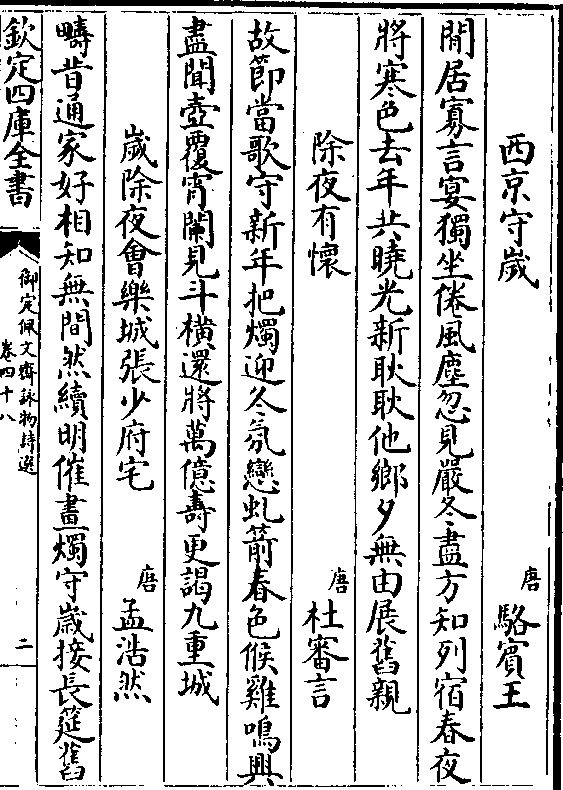 西京守歲 唐 駱賓王
閒居寡言宴獨坐倦風塵忽見嚴冬盡方知列宿春夜
將寒色去年共曉光新耿耿他鄉夕無由展舊親
除夜有懷 唐 杜審言
故節當歌守新年把燭迎冬氛戀虬箭春色候雞鳴興
盡聞壺覆宵闌見斗橫還將萬億壽更謁九重城
歲除夜會樂城張少府宅 唐 孟浩然
疇昔通家好相知無間然續明催畫燭守歲接長筵舊
欽定四庫全書
御定佩文齋詠物詩選
卷四十八
二